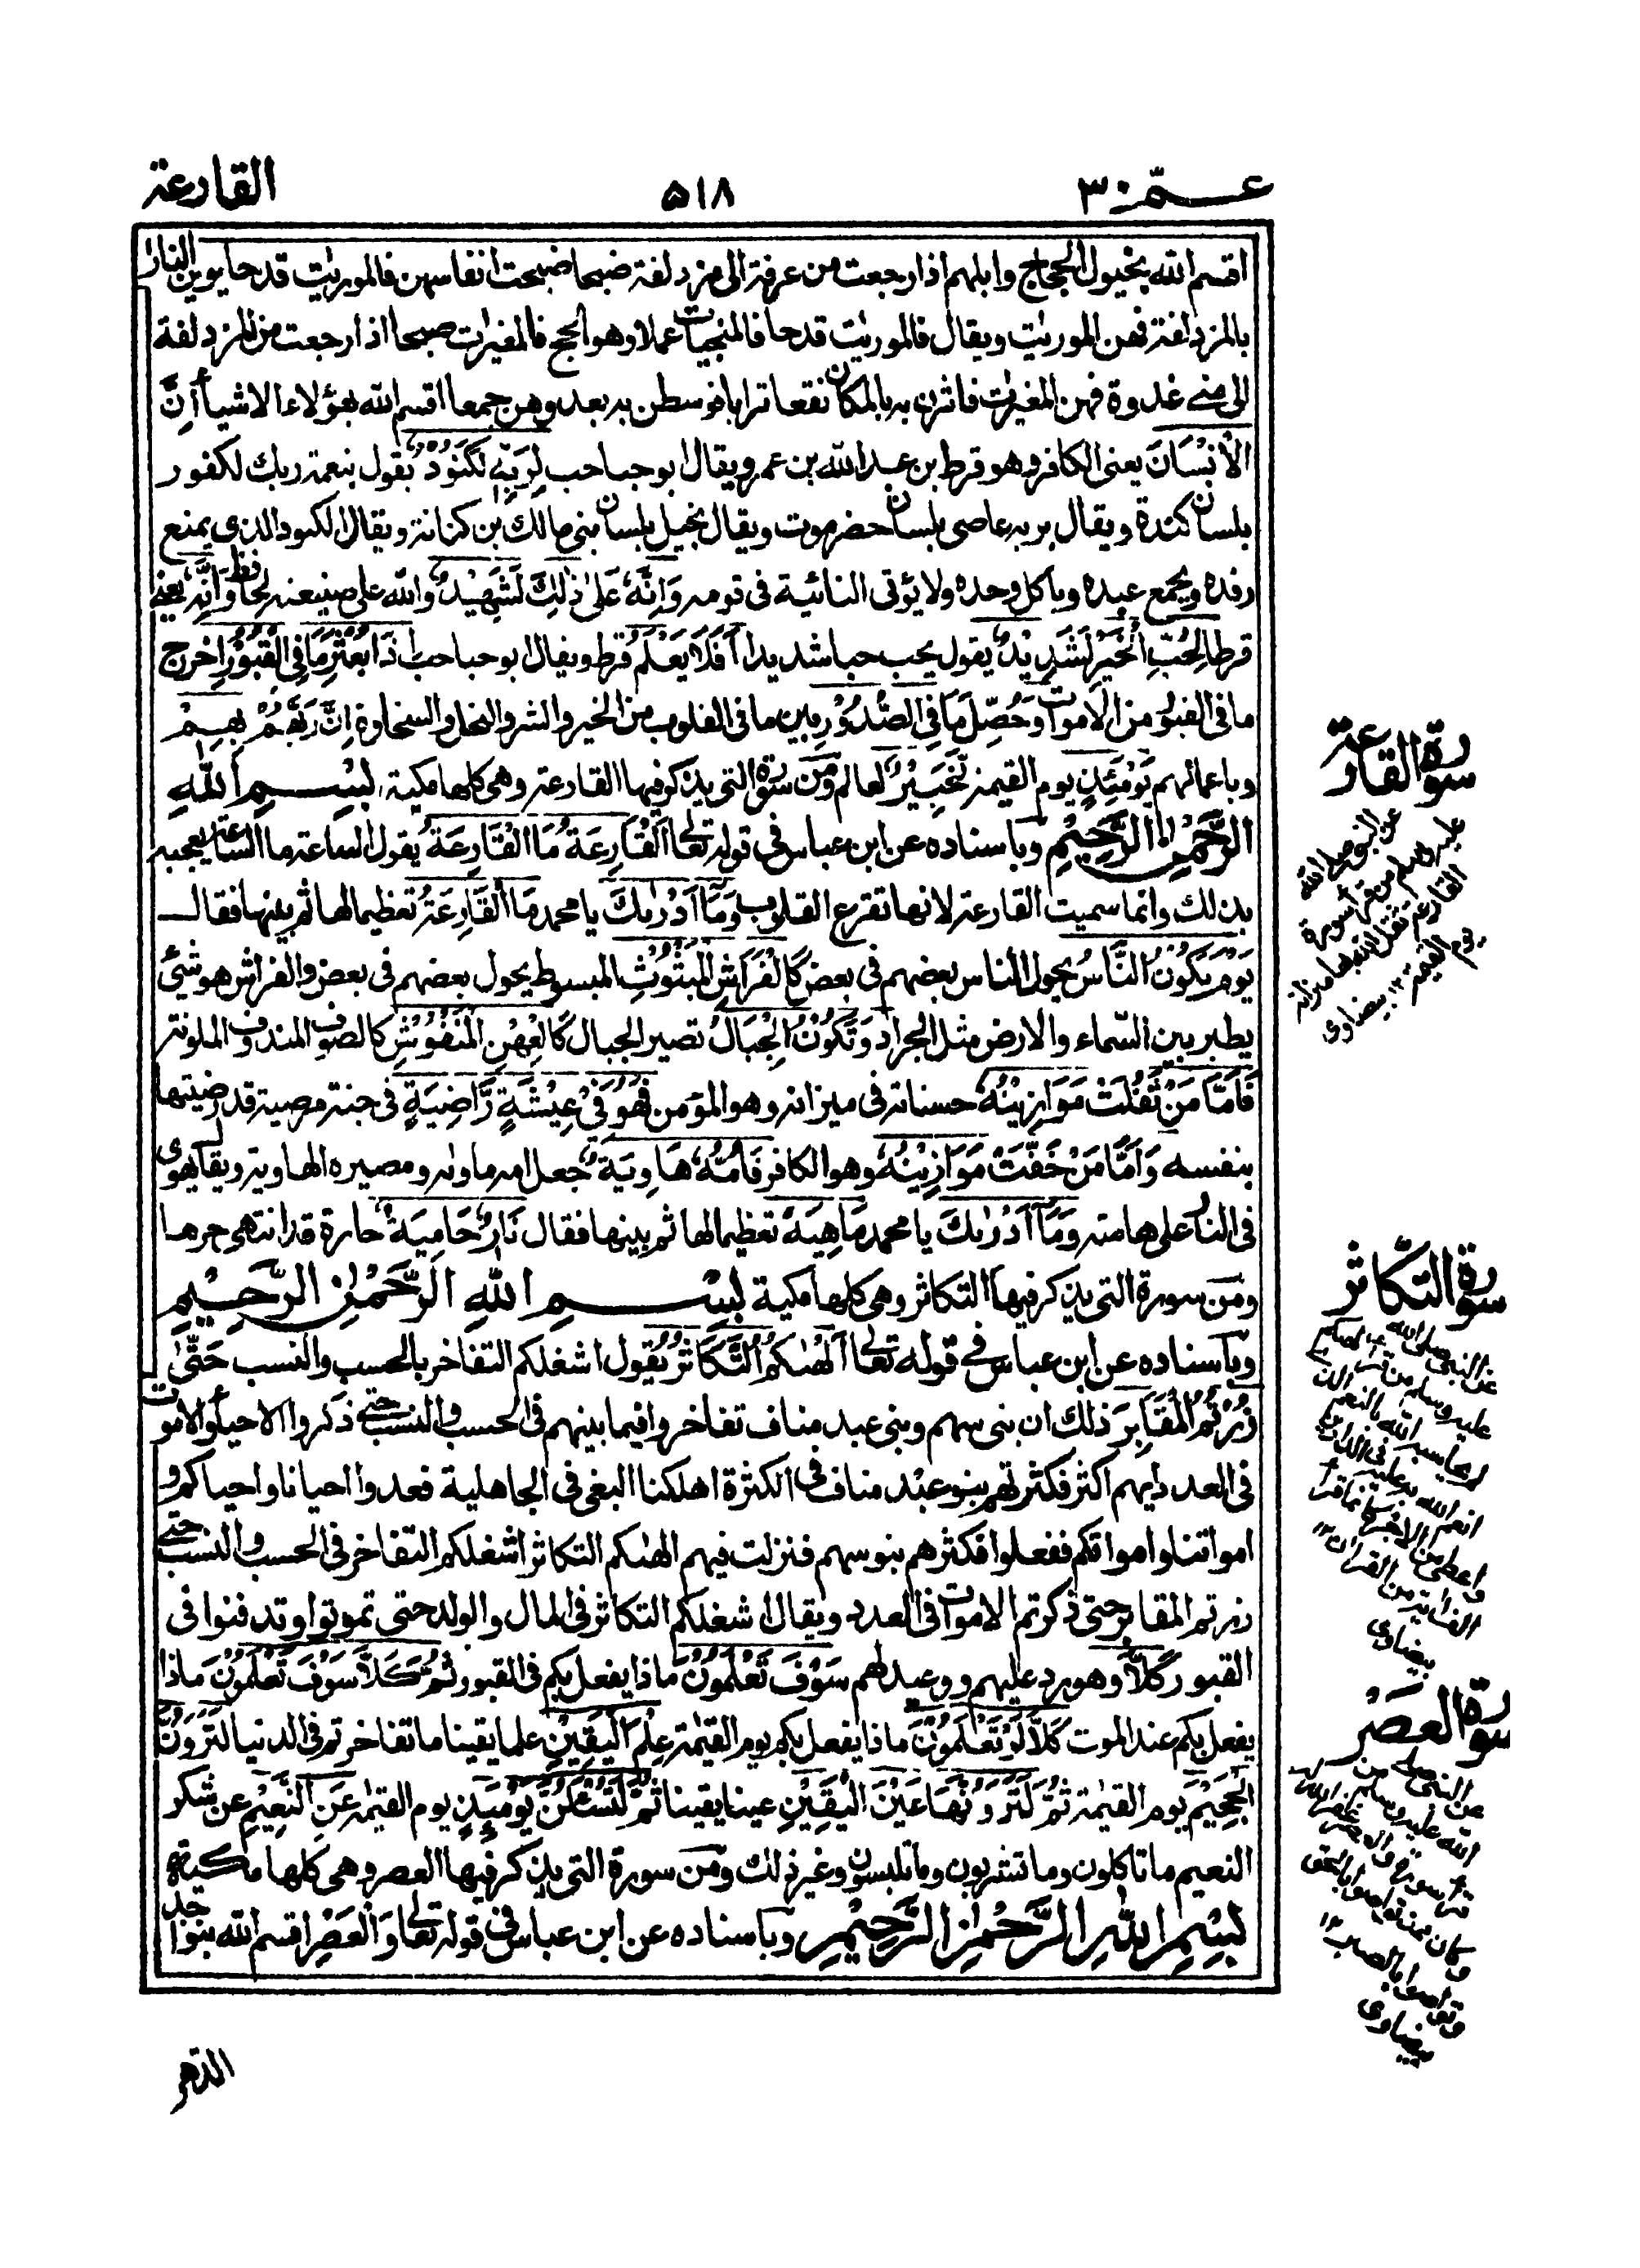 عــمّ ۳۰
۵۱۸
القارعة
اقسم الله بخيول الحجاج وابلهم اذا رجعت من عرفة الى مزدلفة ضبحا ضبحت انفاسهن فالموريٰت قدحا يورين النار
بالمزدلفة فهن الموريٰت ويقال فالموريٰت قدحا فالمنجيات عملا وهو الحج فالمغيرٰت صبحا اذا رجعت من المزدلفة
الى منى غدوة فهن المغيرٰت فاثرن به بالمكان نقعا ترابا فوسطن به بعدوهن جمعا اقسم الله بهؤلاء الاشياء اِنَّ
الْاِنْسَانَ يعنى الكافر وهو قرط بن عبد الله بن عمرو ويقال ابو حباحب لِرَبِّهٖ لَكَنُوْدٌ يقول بنعمة ربك لكفور
بلسان كندة ويقال بربه عاصى بلسان حضرموت ويقال بخيل بلسان بنى مالك بن كنانة ويقال الكنود الذى يمنع
رفده ويجمع عبده وياكل وحده ولا يؤتى النائبة فى قومه وَاِنَّهٗ عَلٰى ذٰلِكَ لَشَهِيْدٌ والله على صنيعه لحافظ وَاِنَّهٗ يعنى
قرطا لِحُبِّ الْخَيْرِ لَشَدِيْدٌ يقول يحب حبا شديدا اَفَلَا يَعْلَمُ قرط ويقال ابو حباحب اِذَا بُعْثِرَ مَا فِى الْقُبُوْرِ اخرج
ما فى القبور من الاموات وَحُصِّلَ مَا فِى الصُّدُوْرِ بين ما فى القلوب من الخير والشر والبخل والسخاوة اِنَّ رَبَّهُمْ بِهِمْ
وباعمالهم يَوْمَئِذٍ يوم القيمة لَّخَبِيْرٌ لعالم ومن سورة التى يذكر فيها القارعة وهى كلها مكية بِسْــمِ اللّٰهِ
الرَّحْمٰنِ الرَّحِيْمِ وباسناده عن ابن عباس فى قوله تعالى اَلْقَارِعَةُ مَا الْقَارِعَةُ يقول الساعة ما الساعة يعجبه
بذلك وانما سميت القارعة لانها تقرع القلوب وَمَا اَدْرٰىكَ يا محمد مَا الْقَارِعَةُ تعظيما لها ثم بينها فقال
يَوْمَ يَكُوْنُ النَّاسُ يجول الناس بعضهم فى بعض كَالْفَرَاشِ الْمَبْثُوْثِ المبسوط يجول بعضهم فى بعض والفراش هو شئ
يطير بين السّماء والارض مثل الجراد وَتَكُوْنُ الْجِبَالُ تصير الجبال كَالْعِهْنِ الْمَنْفُوْشِ كالصوف المندوف الملونة
فَاَمَّا مَنْ ثَقُلَتْ مَوَازِيْنُهٗ حسناته فى ميزانه وهو المؤمن فَهُوَ فِىْ عِيْشَةٍ رَّاضِيَةٍ فى جنة مرضية قد رضيتها
بنفسه وَاَمَّا مَنْ خَفَّتْ مَوَازِيْنُهٗ وهو الكافر فَاُمُّهٗ هَاوِيَةٌ جعل امه ماوٰه ومصيره الهاوية ويقال يهوى
فى النار على هامته وَمَا اَدْرٰىكَ يا محمد مَاهِيَهْ تعظيما لها ثم بينها فقال نَارٌ حَامِيَةٌ حارة قد انتهى حرها
ومن سورة التى يذكر فيها التكاثر وهى كلها مكية بِسْــــمِ اللّٰهِ الرَّحْمٰنِ الرَّحِيْمِ
وباسناده عن ابن عباس فى قوله تعالى اَلْهٰىكُمُ التَّكَاثُرُ يقول اشغلكم التفاخر بالحسب والنسب حَتّٰى
زُرْتُمُ الْمَقَابِرَ ذلك ان بنى سهم وبنى عبد مناف تفاخروا فيما بينهم فى الحسب والنسب حتى ذكروا الاحياء والاموات
فى العدد ايهم اكثر فكثرتهم بنو عبد مناف فى الكثرة اهلكنا البغى فى الجاهلية فعدوا احيانا واحياكم و
امواتنا وامواتكم ففعلوا فكثرهم بنو سهم فنزلت فيهم الهٰىكم التكاثر اشغلكم التفاخر فى الحسب والنسب حتى
زرتم المقابر حتى ذكرتم الاموات فى العدد ويقال اشغلكم التكاثر فى المال والولد حتى تموتوا وتدفنوا فى
القبور كَلَّا وهو رد عليهم ووعيد لهم سَوْفَ تَعْلَمُوْنَ ماذا يفعل بكم فى القبور ثُمَّ كَلَّا سَوْفَ تَعْلَمُوْنَ ماذا
يفعل بكم عند الموت كَلَّا لَوْ تَعْلَمُوْنَ ماذا يفعل بكم يوم القيٰمة عِلْمَ الْيَقِيْنِ علما يقينا ما تفاخرتم فى الدنيا لَتَرَوُنَّ
الْجَحِيْمَ يوم القيٰمة ثُمَّ لَتَرَوُنَّهَا عَيْنَ الْيَقِيْنِ عينا يقينا ثُمَّ لَتُسْئَلُنَّ يَوْمَئِذٍ يوم القيٰمة عَنِ النَّعِيْمِ عن شكر
النعيم ما تاكلون وما تشربون وما تلبسون وغير ذلك ومن سورة التى يذكر فيها العصر وهى كلها مكية
بِسْمِ اللّٰهِ الرَّحْمٰنِ الرَّحِيْمِ وباسناده عن ابن عباس فى قوله تعالى وَالْعَصْرِ اقسم الله بنوائد
سورة القارعة
عن النبى صلى الله
عليه وسلم من قرأ سورة
القارعة ثقل الله بها ميزانه
يوم القيمة ۱۲ بيضاوى
سورة التكاثر
عن النبى صلى الله
عليه وسلم من قرأ
لم يحاسبه الله بالنعيم الذى
انعم الله به عليه فى
واعطى من الاجر كانما قرأ
الف اية من القرآن ۱۲
بيضاوى
سورة العصر
عن النبى صلى
الله عليه وسلم من
قرأ سورة والعصر غفر الله له
وكان ممن تواصوا بالحق
وتواصوا بالصبر ۱۲
بيضاوى
الدهر